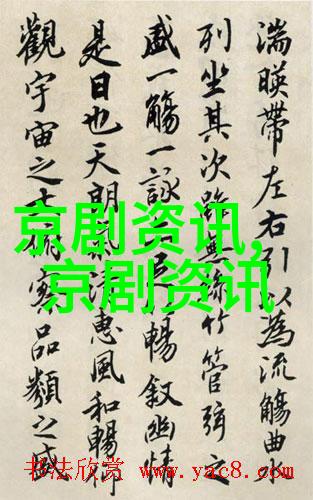 湍暎帶左右引以為流觴曲水
列坐其次雖無絲竹管弦之
盛一觴一詠足暢敘幽情
是日也天朗惠風和暢仰
觀宇宙之察品類之盛
京剧资讯,
京剧资讯
书法欣赏 www.yac8.com